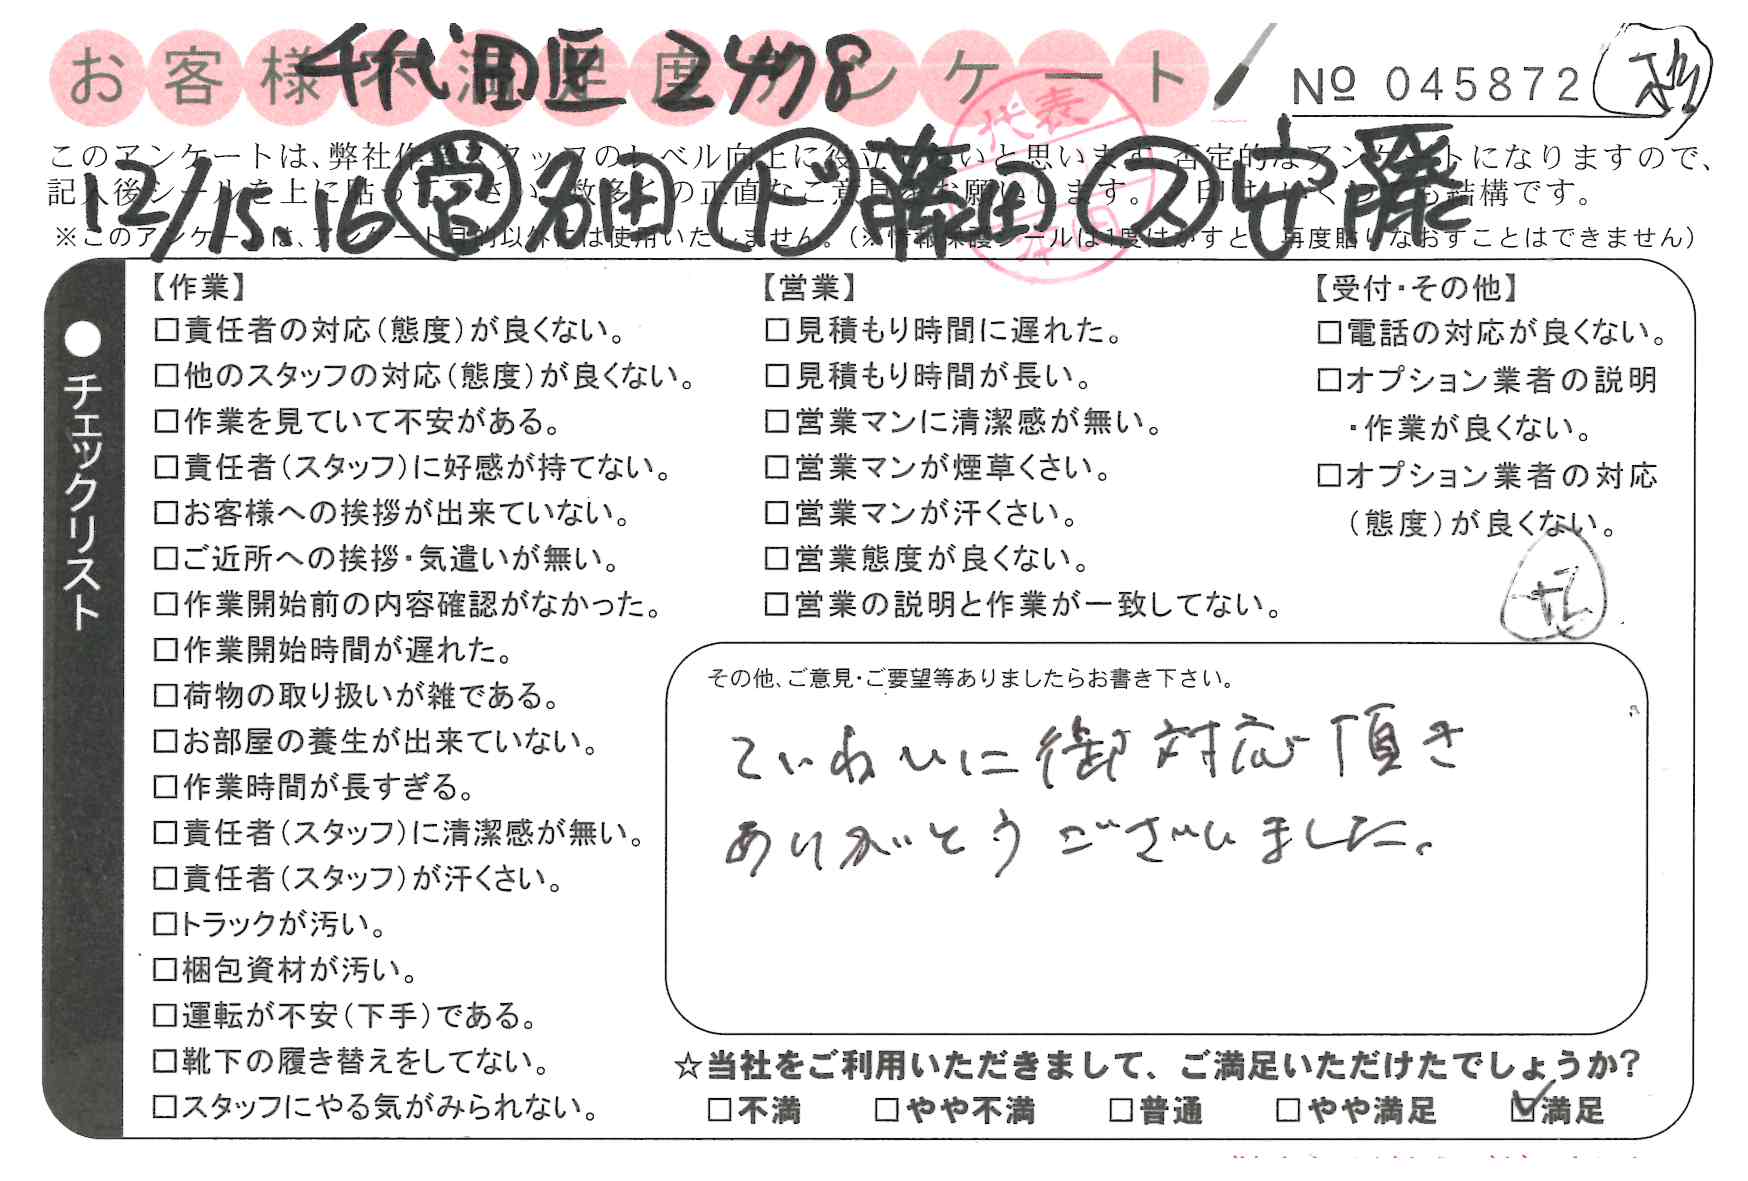 お客様不満足度アンケート
千代田区
№ 045872
このアンケートは、弊社作業スタッフのレベル向上に役立てたいと思います。否定的なアンケートになりますので、
記入後シールを上に貼って下さい。数多くの正直なご意見をお願いします。レ印はいくつでも結構です。
※このアンケートは、アンケート目的以外には使用いたしません。(※情報保護シールは1度はがすと、再度貼りなおすことはできません)
12/15.16 営 名田 ド 藤田 ス 安藤
代表
●チェックリスト
【作業】
□責任者の対応(態度)が良くない。
□他のスタッフの対応(態度)が良くない。
□作業を見ていて不安がある。
□責任者(スタッフ)に好感が持てない。
□お客様への挨拶が出来ていない。
□ご近所への挨拶・気遣いが無い。
□作業開始前の内容確認がなかった。
□作業開始時間が遅れた。
□荷物の取り扱いが雑である。
□お部屋の養生が出来ていない。
□作業時間が長すぎる。
□責任者(スタッフ)に清潔感が無い。
□責任者(スタッフ)が汗くさい。
□トラックが汚い。
□梱包資材が汚い。
□運転が不安(下手)である。
□靴下の履き替えをしてない。
□スタッフにやる気がみられない。
【営業】
□見積もり時間に遅れた。
□見積もり時間が長い。
□営業マンに清潔感が無い。
□営業マンが煙草くさい。
□営業マンが汗くさい。
□営業態度が良くない。
□営業の説明と作業が一致してない。
【受付・その他】
□電話の対応が良くない。
□オプション業者の説明
・作業が良くない。
□オプション業者の対応
(態度)が良くない。
その他、ご意見・ご要望等ありましたらお書き下さい。
ていねいに御対応頂き
ありがとうございました。
☆当社をご利用いただきまして、ご満足いただけたでしょうか?
□不満 □やや不満 □普通 □やや満足 ☑満足